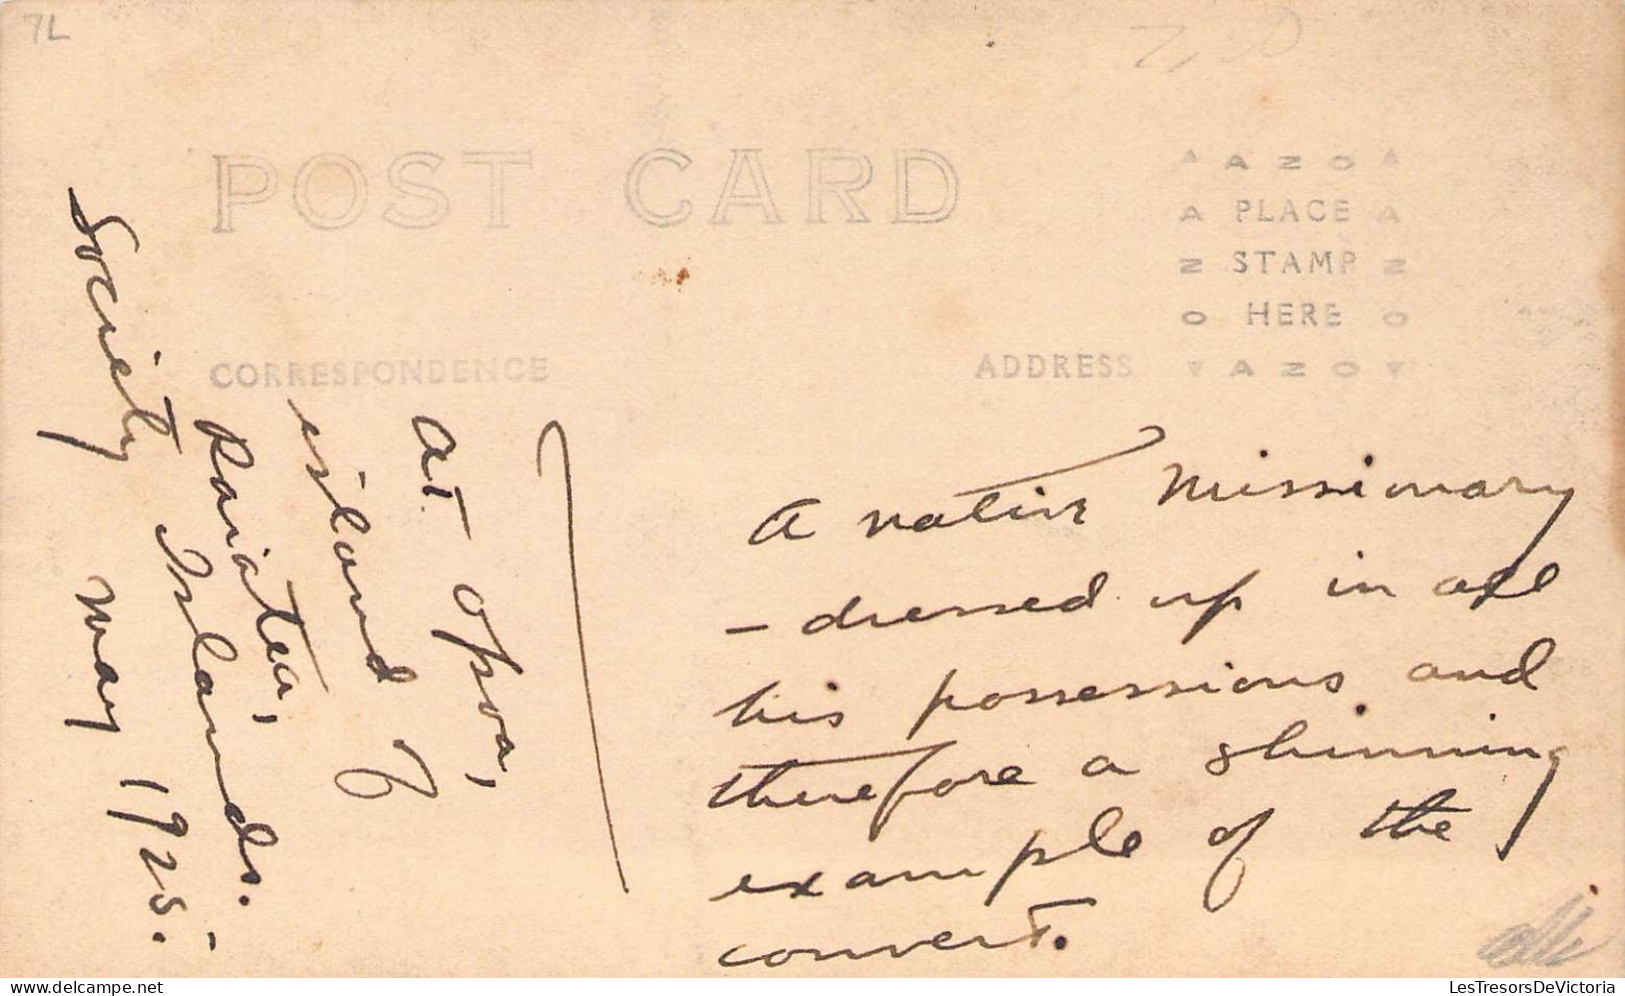 7L
POST CARD
AZO
PLACE
STAMP
HERE
AZO
CORRESPONDENCE
ADDRESS
At Opoa,
island of
Raiatea,
Society Islands.
May 1925.
A native missionary
- dressed up in all
his possessions and
therefore a shinning
example of the
convert.
LesTresorsDeVictoria
www.delcampe.net